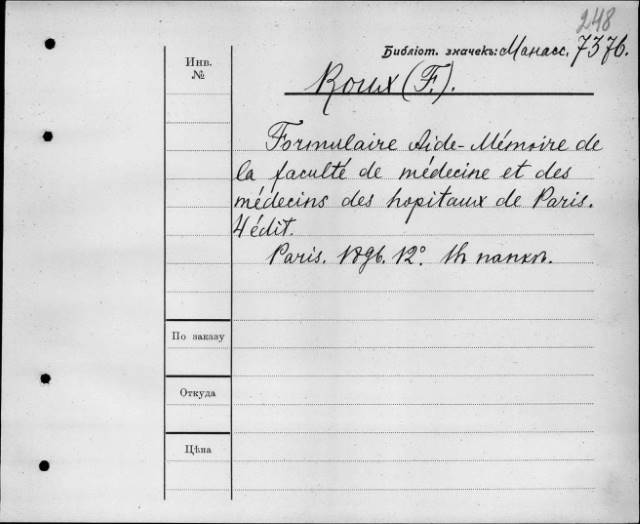 248
Библіот. значекъ: Манасс. 7376.
Инв.
№
Roux (F.).
Formulaire Aide-Mémoire de
la faculté de médecine et des
médecins des hopitaux de Paris.
4 édit.
Paris. 1896. 12°. въ папков.
По заказу
Откуда
Цѣна